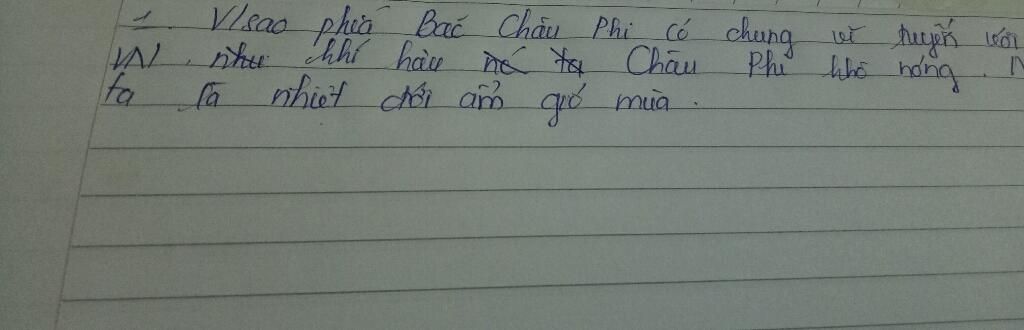 1. Vì sao phía Bắc Châu Phi có chung vĩ tuyến với
VN. như khí hậu Châu Phi khô nóng. N
ta là nhiệt đới ẩm gió mùa.